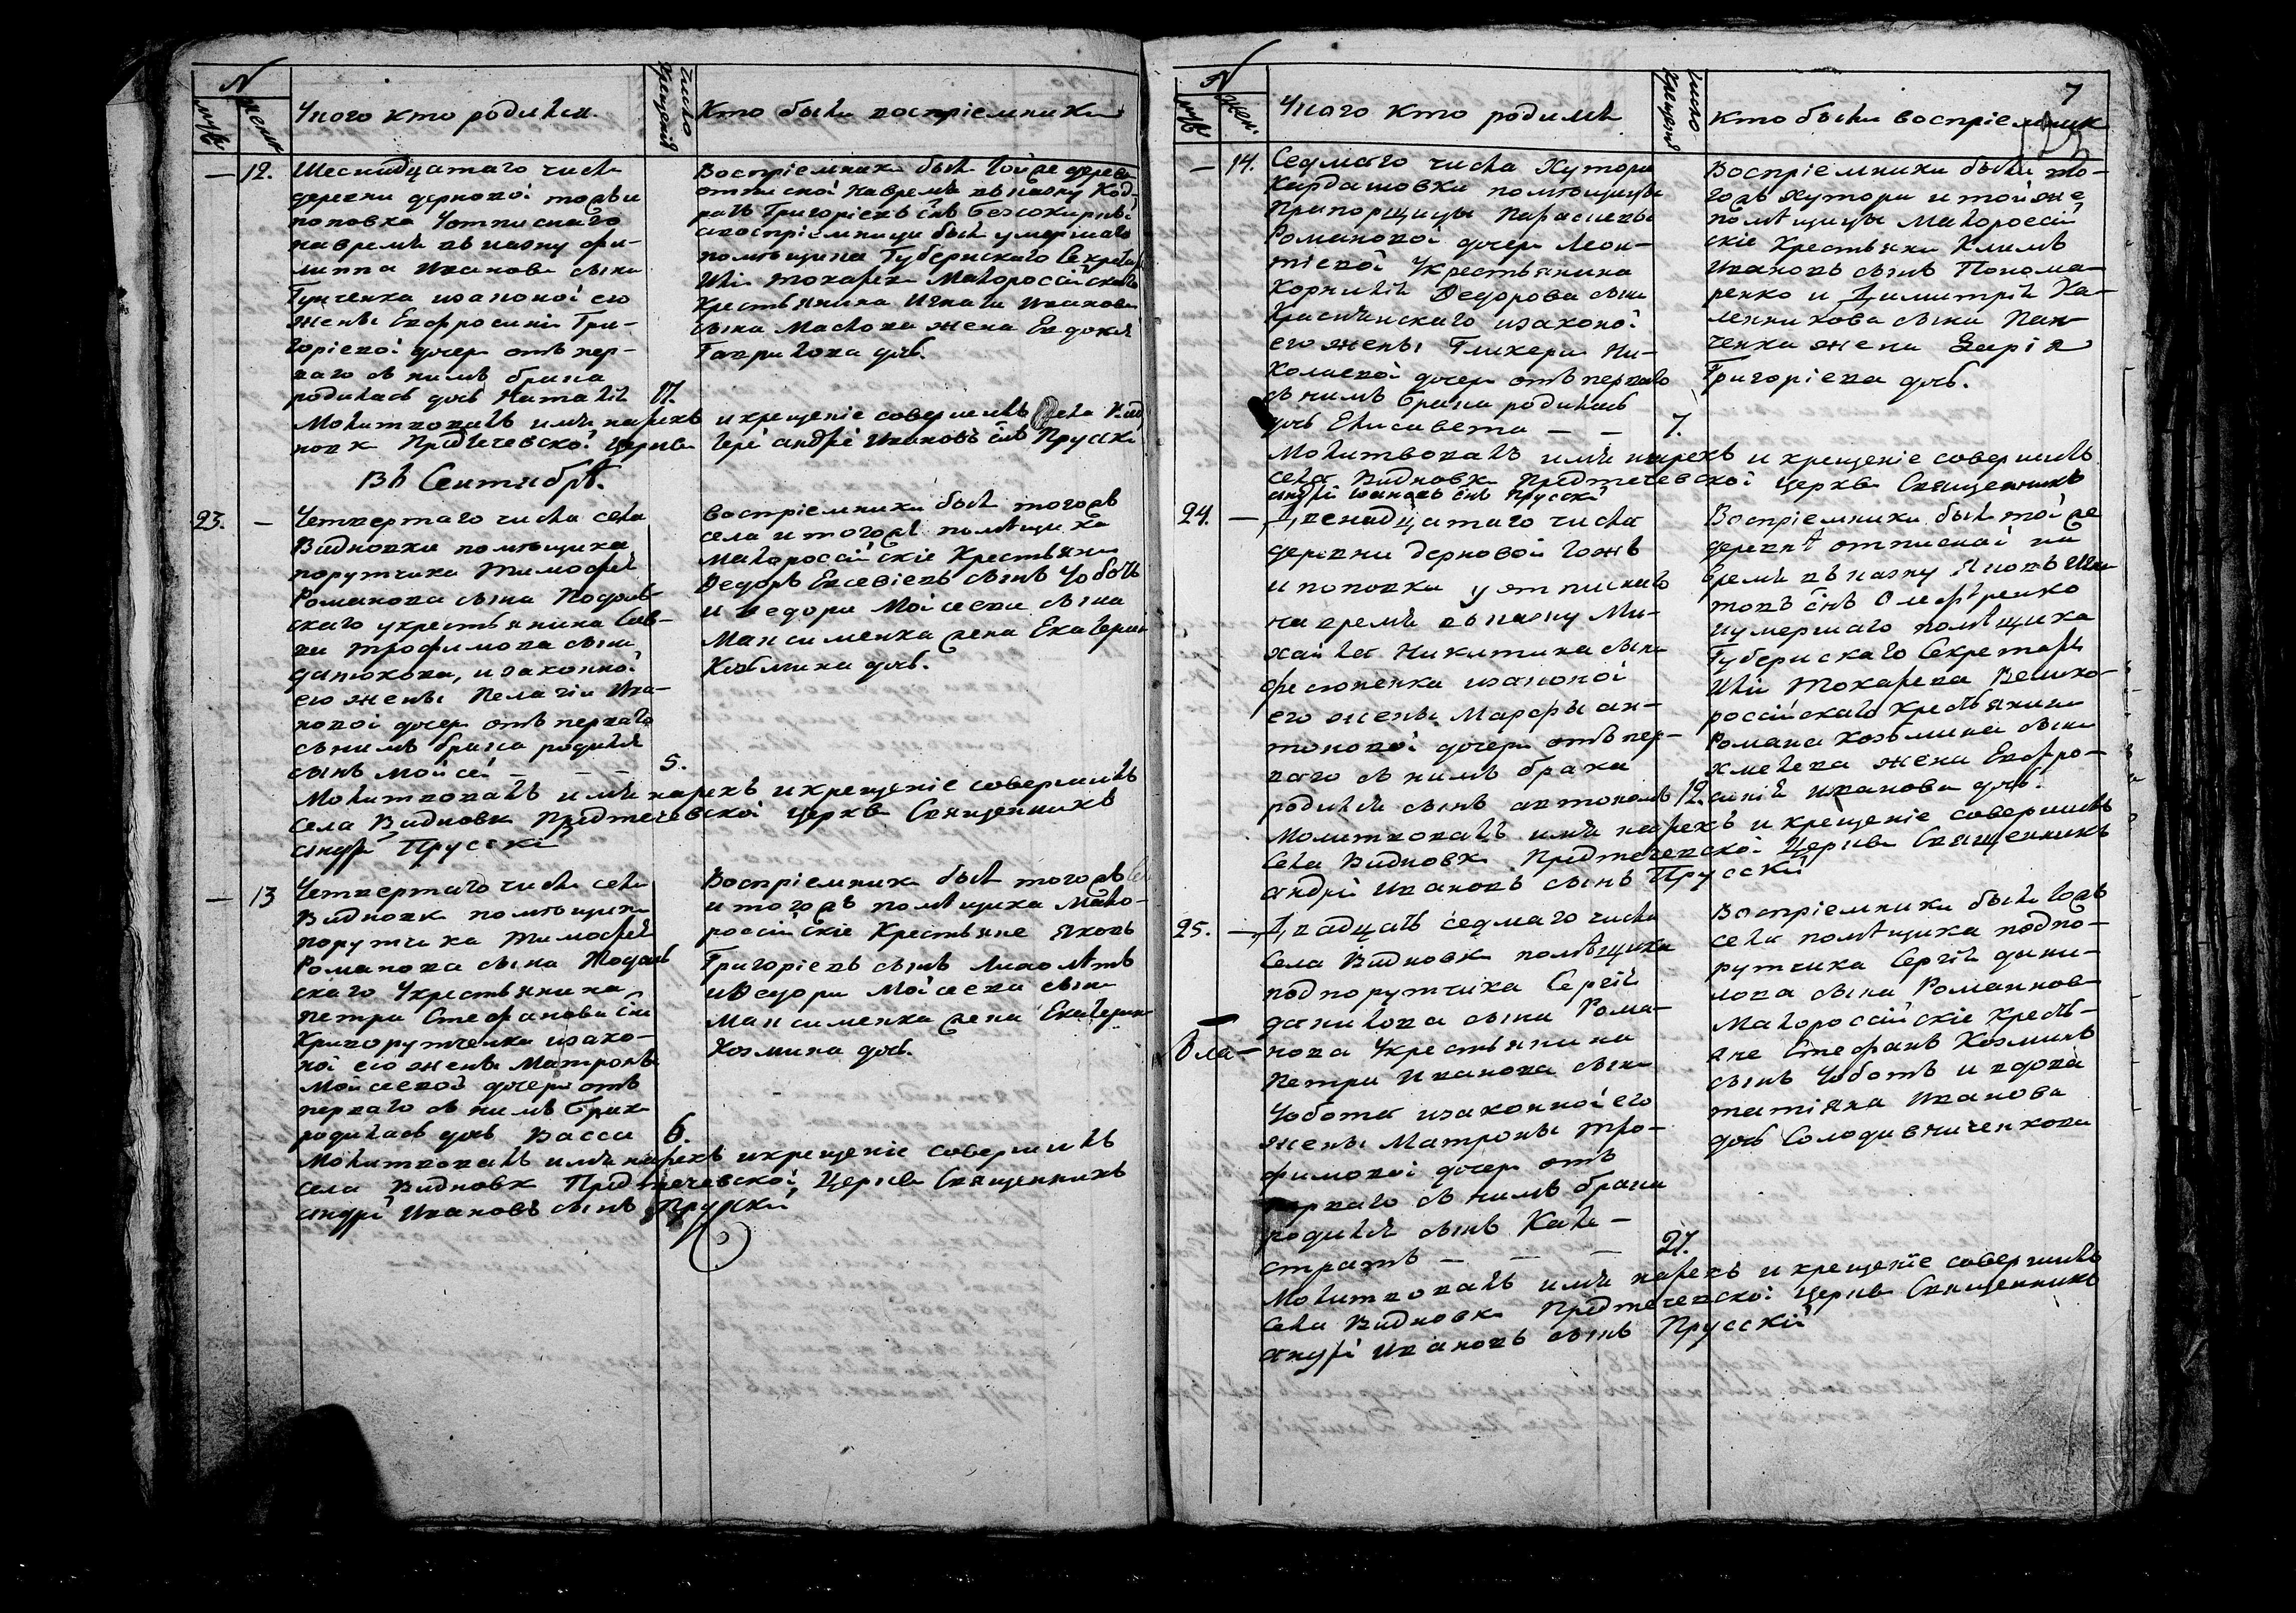 N
муж женс
У кого кто родился.
Число крещения
Кто были восприемники
— 12. Шеснадцатаго числа
деревни дерновой тожъ и
поповка Уотписнаго
навремя въ казну фи-
липпа Иванова сына
изаконой его
жены Евфросинии Гри-
горіевой дочери отъ пер-
ваго съ нимъ брака
родилась дочь Наталія 17.
Восприемники были тойже деревни
отписной навремя въ казну Код-
ратъ Григоріевъ снъ
авоспріемници была умершаго
помѣщика Губернскаго Секретаря
Иліи токарева Малоросійскаго
Крестьянина Игната Иванова
сына Маслова жена Евдокія
Гаврилова дочь.
Молитвовалъ имя нарекъ и крещеніе совершилъ села Видновки Предтечевской Церкви Іерей андрей Ивановъ снъ Прускій
Въ Сентябрѣ.
23. — Четвертаго числа села
Видновки помѣщика
порутчика Тимофея
Романова сына
скаго укрестьянина Сав-
вы трофимова сына
изаконной
его жены Пелагіи Ива-
новой дочери отъ перваго
съ нимъ брака родился
сынъ Мойсей — — — 5.
Восприемники были тогожъ
села и тогожъ помѣщика
малороссійскіе Крестьяни
Федоръ Евсевіевъ сынъ Чоботъ
и Федора Мойсеева сына
Максименка жена Екатерина
Козьмина дочь.
Молитвовалъ имя нарекъ и крещеніе совершилъ
села Видновки Предтечевской Церкви Священникъ
андрей Прусскій
— 13 Четвертаго числа села
Видновки помѣщика
порутчика Тимофея
Романова сына
скаго Укрестьянина
Петра Стефанова сна
Криворутченка изако-
ной его жены Матроны
Мойсеевой дочери отъ
перваго съ нимъ брака
родилась дочь Васса 6.
Восприемники были тогожъ села
и тогожъ помѣщика Мало-
россійскіе Крестьяне Яковъ
Григоріевъ сынъ Лихолѣтъ
и Федора Мойсеева сына
Максименка жена Екатерина
Козмина дочь.
Молитвовалъ имя нарекъ и крещеніе совершилъ
села Видновки Предтечевской Церкви Священникъ
андрей Ивановъ сынъ Прускій
N
муж жен.
У кого кто родился
Число крещения
кто были восприемники
7
— 14. Седмаго числа Хутора
Кардашовки помѣщицы
Прапорщицы Параскевы
Романовой дочери Леон-
тіевой Укрестьянина
Корнилія Федорова сына
Красичинскаго изаконой
его жены Гликери Ни-
колаевой дочери отъ перваго
съ нимъ брака родилась
дочь Елисавета — — 7.
Восприемники были то-
гожъ хутора и тойже
помѣщицы Малороссій-
скіе Крестьяни Климъ
Ивановъ сынъ Понома-
ренко и Димитрія Ка-
ленникова сына Пан-
ченка жена Дарія
Григоріева дочь.
Молитвовалъ имя нарекъ и крещеніе совершилъ
села Видновки Предтечевской Церкви Священникъ
андрей Ивановъ снъ Прусскій
24. — Двенадцатаго числа
деревни дерновой тожъ
и поповка у отписнаго
на время въ казну Ми-
хайла Никитина сына
изаконой
его жены Марфы ан-
тоновой дочери отъ пер-
ваго съ нимъ брака
родился сынъ автономъ 12.
Восприемники были той же
деревнѣ отписной на
время въ казну Яковъ
снъ Олефѣренко
иумершаго помѣщика
Губернскаго Секретаря
Иліи Токарева Велико-
россійскаго крестьянина
Романа Козьмина сына
Хмелева жена Евфро-
синія Иванова дочь.
Молитвовалъ имя нарекъ и крещеніе совершилъ
села Видновки Предтечевской Церкви Священникъ
андрей Ивановъ сынъ Прусскій
25. — Двадцать седмаго числа
села Видновки помѣщика
подпорутчика Сергея
данилова сына Рома-
нова Укрестьянина
Петра Иванова сына
Чобота изаконной его
жены Матроны тро-
фимовой дочери отъ
перваго съ нимъ брака
родился сынъ Кали-
стратъ — — — 27.
Восприемники были тогожъ
села помѣщика подпо-
рутчика Сергія дани-
лова сына Романова
Малороссійскіе крестья-
яне Стефанъ Козминъ
сынъ Чоботъ и вдова
татіяна Иванова
дочь
Молитвовалъ имя нарекъ и крещеніе совершилъ
села Видновки Предтечевской Церкви Священникъ
андрей Ивановъ сынъ Прусскій